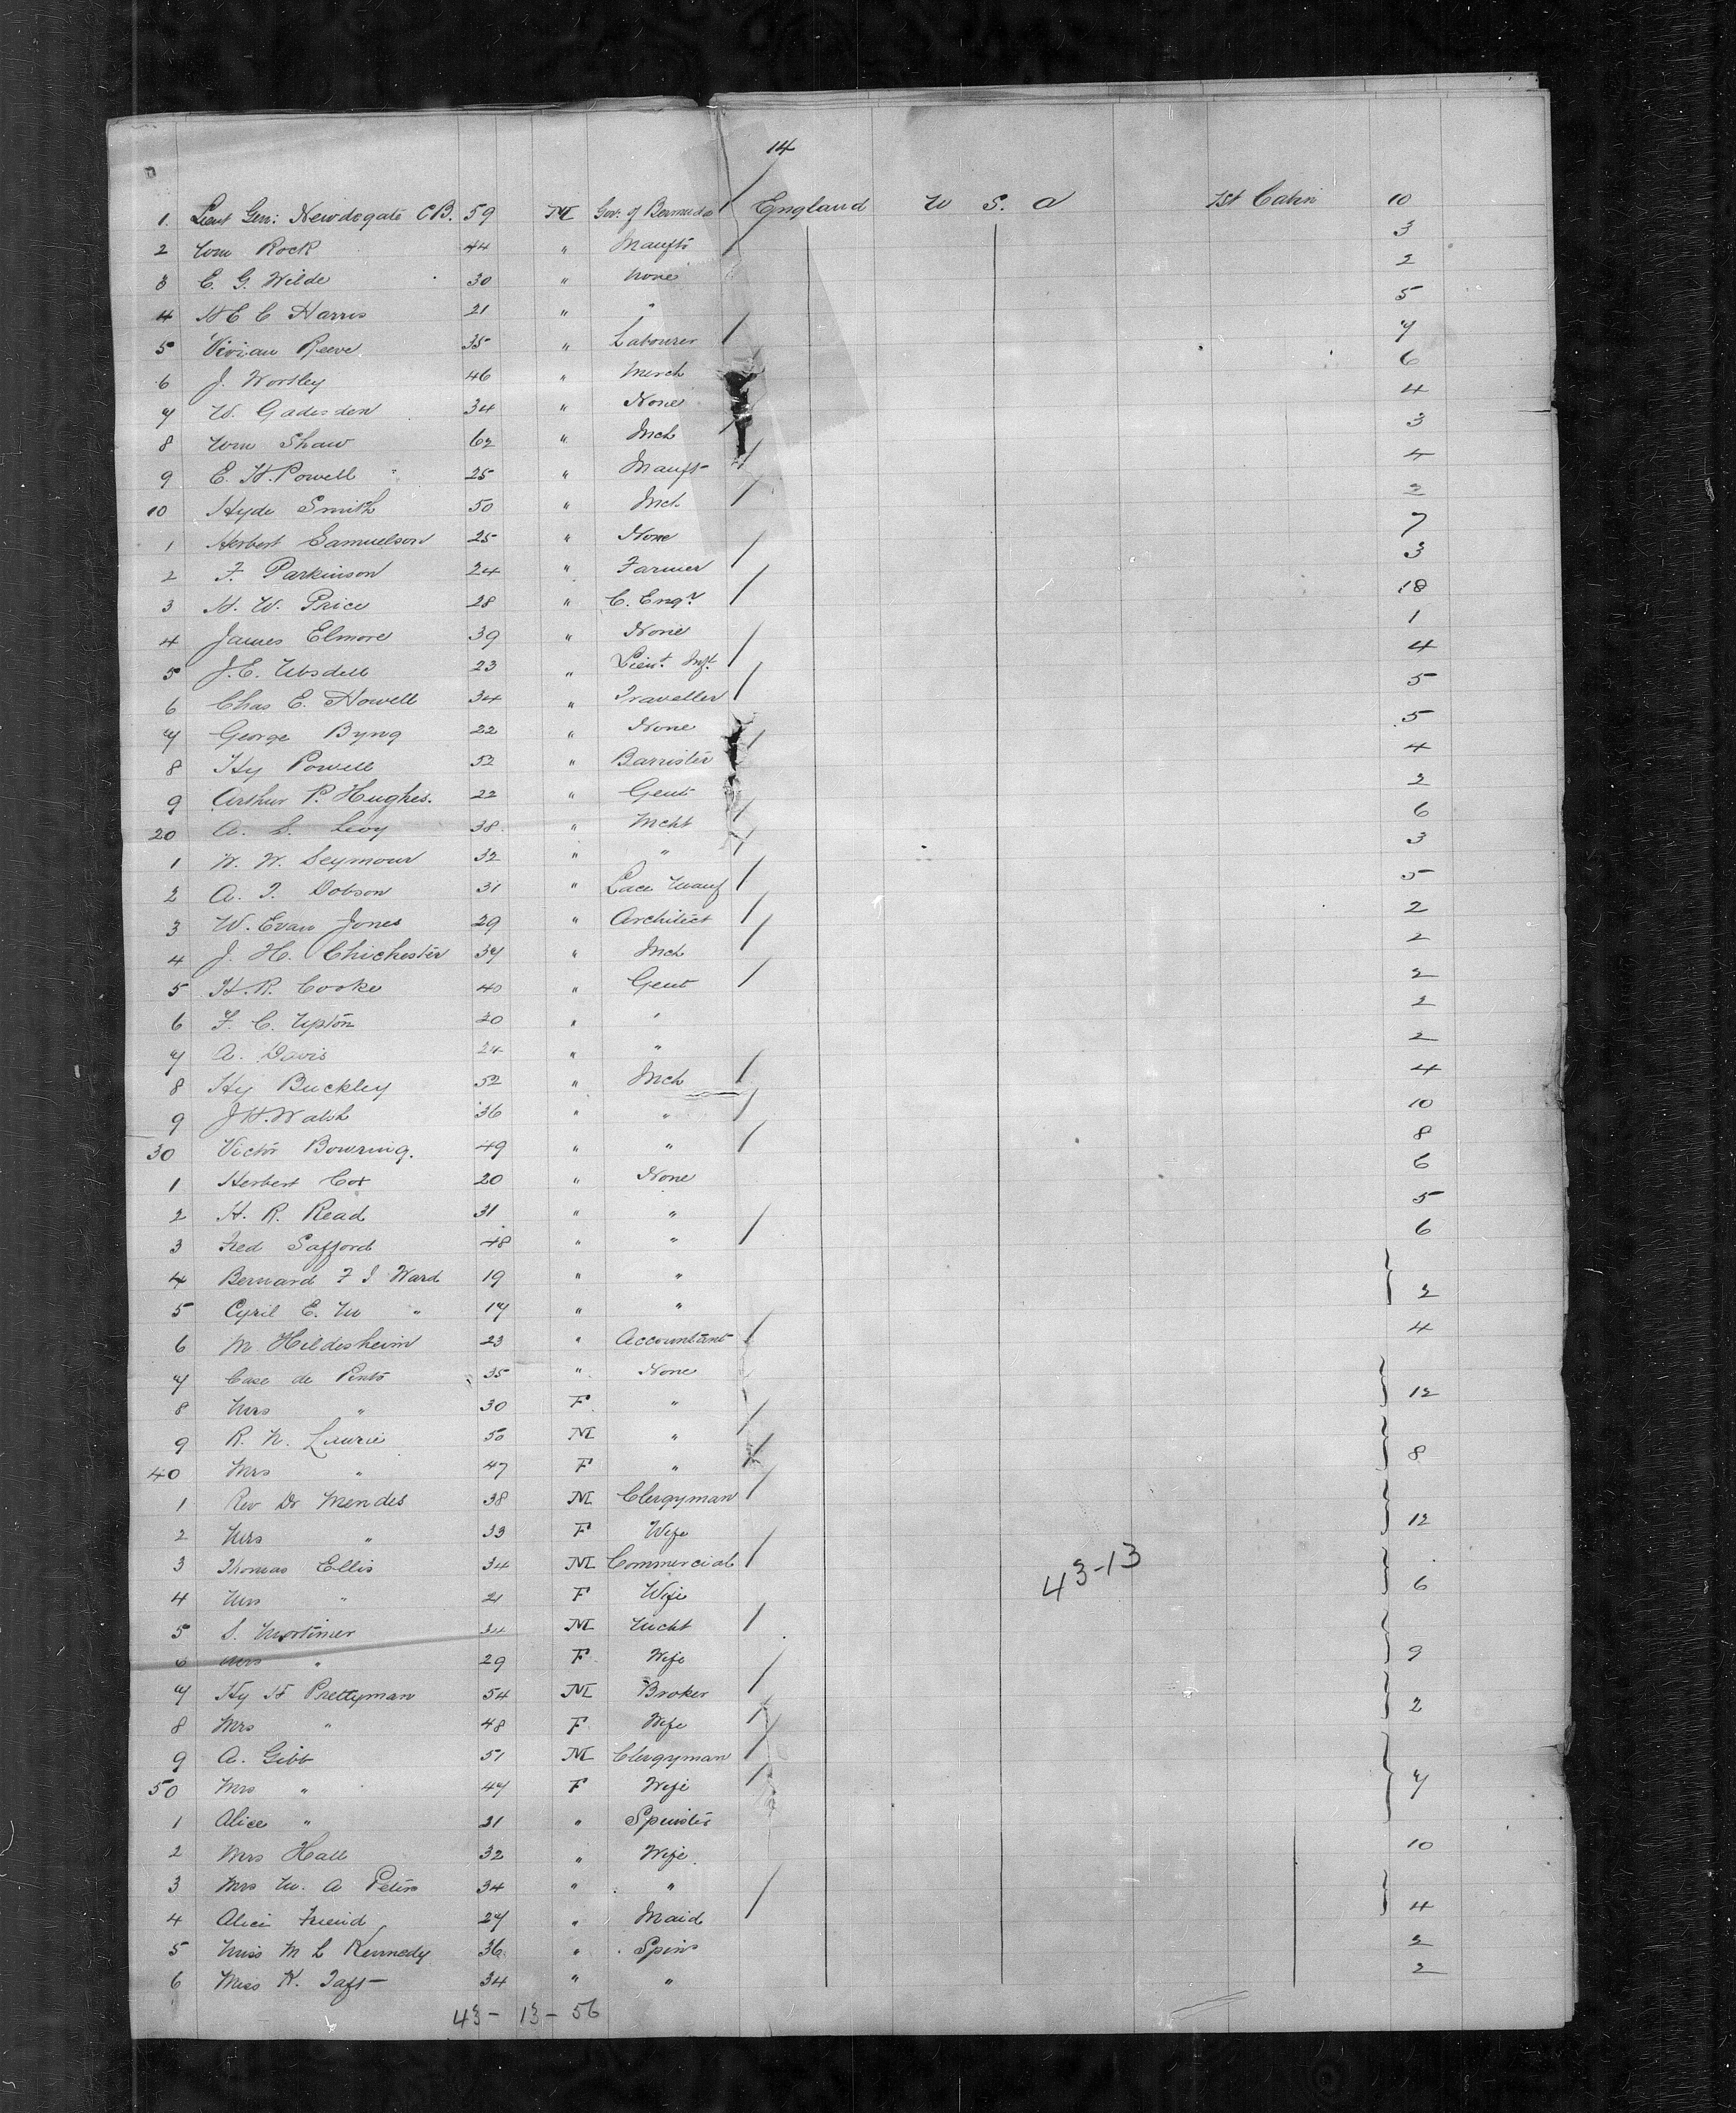 14
1. Lieut Gen: Newdogate C B. 59 M Gov. of Bermuda England U S. A 1st Cabin 10
2 Wm Rock 44 " Manuftr 3
3 E. G. Wilde 30 " None 2
4 H E C Harris 21 " " 5
5 Vivian Reeve 35 " Labourer 7
6 J. Wortley 46 " Merch 6
7 W. Gadesden 34 " None 4
8 Wm Shaw 62 " Mch 3
9 E. H. Powell 25 " Manuft 4
10 Hyde Smith 50 " Mch 2
1 Herbert Samuelson 25 " None 7
2 F. Parkinson 24 " Farmer 3
3 H. W. Price 28 " C. Engr 18
4 James Elmore 39 " None 1
5 J. C. Ubsdell 23 " Lieut. Inft. 4
6 Chas E. Howell 34 " Traveller 5
7 George Byng 22 " None 5
8 Hy Powell 52 " Barrister 4
9 Arthur P. Hughes. 22 " Gent 2
20 A. S. Levy 38 " Mcht 6
1 W. W. Seymour 32 " " 3
2 A. T. Dobson 31 " Lace Manf 5
3 W. Evan Jones 29 " Architect 2
4 J. H. Chichester 37 " Mch 2
5 H. R. Cooke 40 " Gent 2
6 F. C. Upton 20 " " 2
7 A. Davis 24 " " 2
8 Hy Buckley 52 " Mch 4
9 J H Walsh 36 " " 10
30 Victor Bowring. 49 " " 8
1 Herbert Cox 20 " None 6
2 H. R. Read 31 " " 5
3 Fred Safford 48 " " 6
4 Bernard F J Ward 19 " "
5 Cyril E. M " 17 " " 2
6 M Hildesheim 23 " Accountant 4
7 Case de Pinto 35 " None
8 Mrs " 30 F " 12
9 R. N. Laurie 50 M "
40 Mrs " 47 F " 8
1 Rev Dr Mendes 38 M Clergyman
2 Mrs " 33 F Wife 12
3 Thomas Ellis 34 M Commercial 43-13
4 Mrs " 21 F Wife 6
5 S. Mortimer 34 M Mcht
6 Mrs " 29 F Wife 9
7 Hy H Prettyman 54 M Broker
8 Mrs " 48 F Wife 2
9 A. Gibb 51 M Clergyman
50 Mrs " 47 F Wife 7
1 Alice " 21 " Spinster
2 Mrs Hall 32 " Wife 10
3 Mrs W. A Peters 34 " "
4 Alice Friend 27 " Maid 4
5 Miss M L Kennedy 36 " Spins 2
6 Miss K. Taft 34 " " 2
43 - 13 - 56